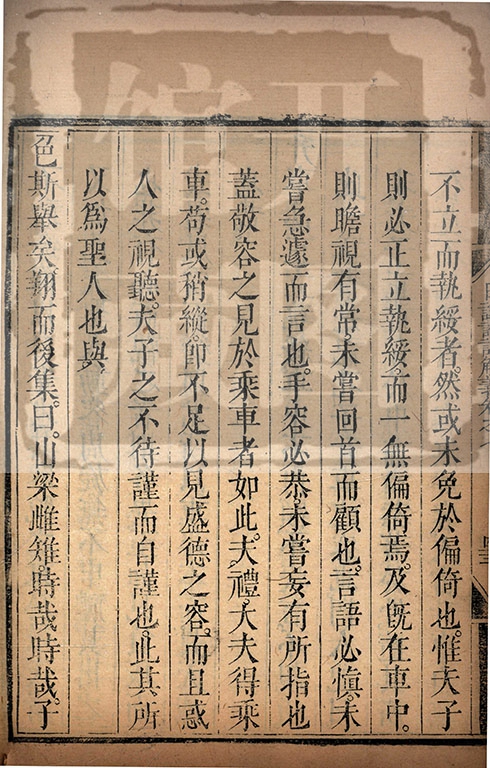 不立而執綏者。然或未免於偏倚也。惟夫子
則必正立執綏。而一無偏倚焉。及既在車中。
則瞻視有常。未嘗回首而顧也。言語必慎。未
嘗急遽而言也。手容必恭。未嘗妄有所指也
蓋敬容之見於乘車者如此。夫禮。大夫得乘
車。苟或稍縱。卽不足以見盛德之容。而且惑
人之視聽。夫子之不待謹而自謹也。此其所
以爲聖人也與
色斯舉矣。翔而後集。曰。山梁雌雉。時哉時哉。子